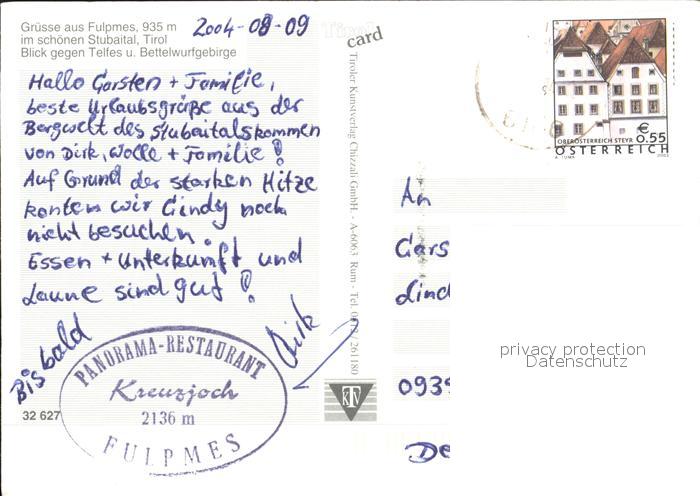 Grüsse aus Fulpmes, 935 m
im schönen Stubaital, Tirol
Blick gegen Telfes u. Bettelwurfgebirge
2004-08-09
Hallo Carsten + Familie,
beste Urlaubsgrüße aus der
Bergwelt des Stubaitalskommen
von Dirk, Wolle + Familie!
Auf Grund der starken Hitze
konten wir Cindy noch
nicht besuchen.
Essen + Unterkunft und
Laune sind gut!
Bis bald
Dirk
PANORAMA-RESTAURANT
Kreuzjoch
2136 m
FULPMES
32 627
Tirol
card
Tiroler Kunstverlag Chizzali GmbH. - A-6063 Rum - Tel. 261180
KTV
OBERÖSTERREICH STEYR
€ 0.55
ÖSTERREICH
A. TUMA 2003
An
Cars
Lind
093
De
privacy protection
Datenschutz